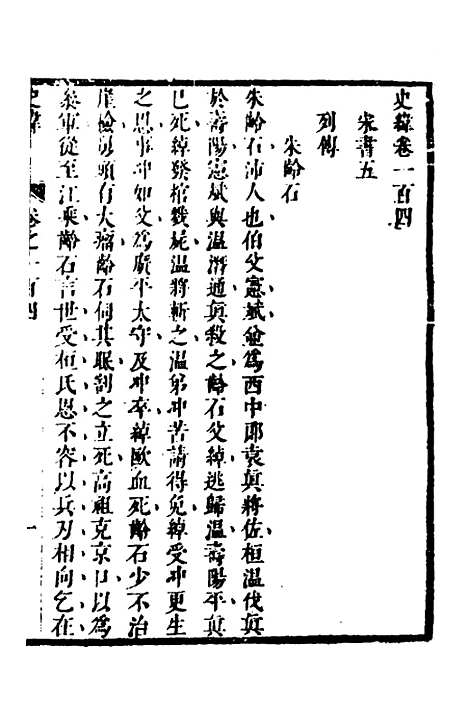 史緯卷一百四
宋書五
列傳
朱齡石
朱齡石沛人也伯父憲斌並爲西中郎袁眞將佐桓溫伐眞
於壽陽憲斌與溫潛通眞殺之齡石父綽逃歸溫壽陽平眞
已死綽發棺戮屍溫將斬之溫弟冲苦請得免綽受冲更生
之恩事冲如父爲廣平太守及冲卒綽歐血死齡石少不治
崖檢舅頭有大瘤齡石伺其眠割之立死高祖克京口以爲
叅軍從至江乘齡石言世受桓氏恩不容以兵刃相向乞在
史緯
卷之一百四
一